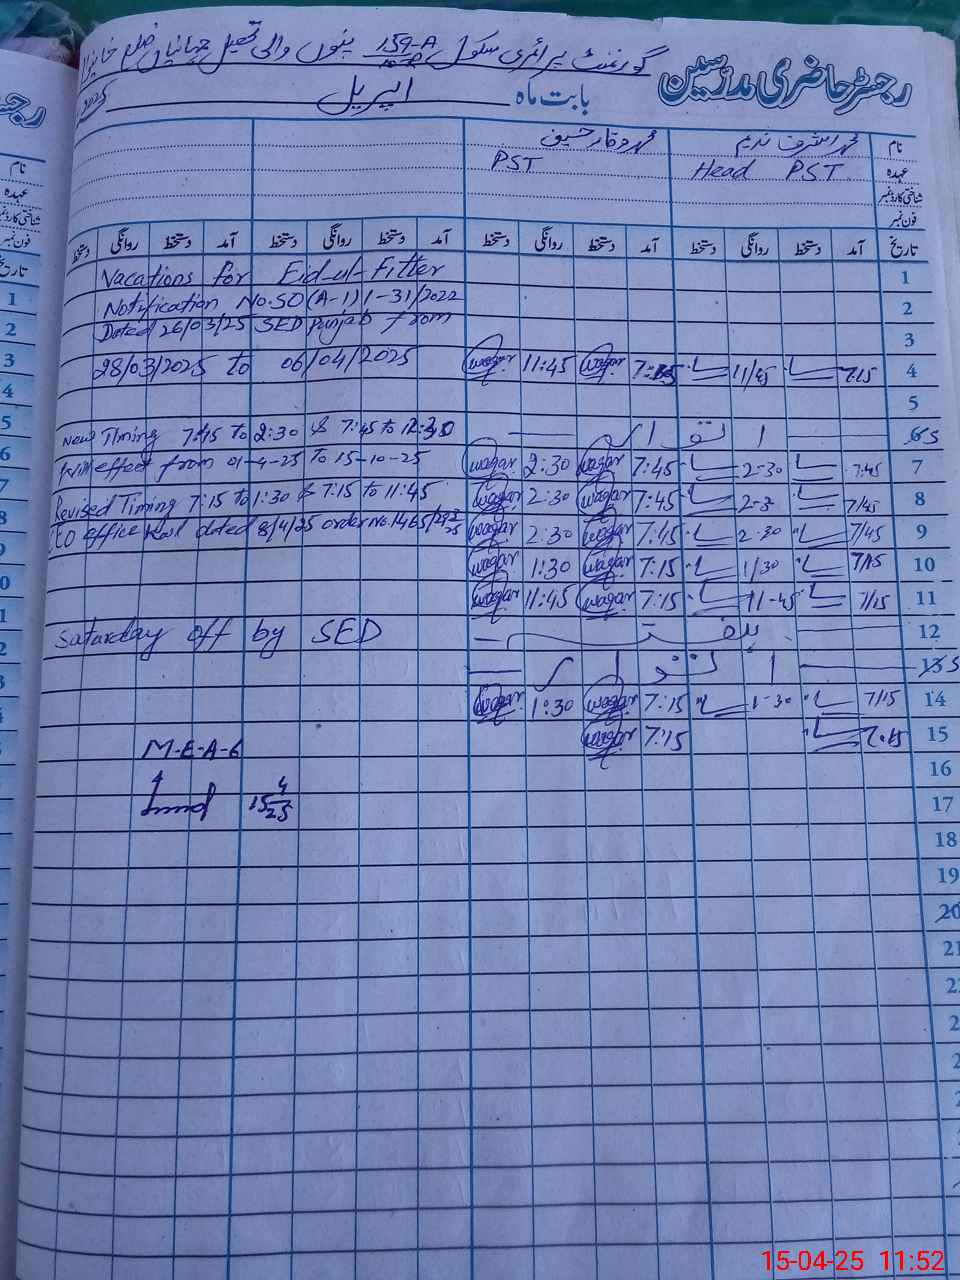 رجسٹر حاضری مدرسین
گورنمنٹ پرائمری سکول 159-A پنوں والی تحصیل جہانیاں ضلع
بابت ماہ اپریل 2025
نام محمد اشرف ندیم محمد وقار حنیف
عہدہ Head PST PST
شناختی کارڈ نمبر
فون نمبر
تاریخ آمد دستخط روانگی دستخط آمد دستخط روانگی دستخط آمد دستخط روانگی دستخط آمد دستخط روانگی دستخط
Vacations for Eid-ul-Fitter 1
Notification No.SO(A-1) 1-31/2022 2
Dated 26/03/25 SED Punjab from 3
28/03/2025 to 06/04/2025 waqar 11:45 waqar 11/45 7:15 4
5
New Timing 7:45 to 2:30 & 7:45 to 12:30 اتوار 6 S
With effect from 01-4-25 To 15-10-25 waqar 2:30 waqar 7:45 2-30 7:45 7
Revised Timing 7:15 to 1:30 & 7:15 to 11:45 waqar 2:30 waqar 7:45 7/45 8
CEO office dated 8/4/25 order No. waqar 2:30 waqar 7:45 2-30 7/45 9
waqar 1:30 waqar 7:15 1/30 7/15 10
waqar 11:45 waqar 7:15 11-45 7/15 11
Saturday off by SED ہفتہ 12
اتوار 13 S
waqar 1:30 waqar 7:15 1-30 7/15 14
waqar 7:15 7:15 15
M-E-A-6
16
15/4/25 17
18
19
20
21
15-04-25 11:52